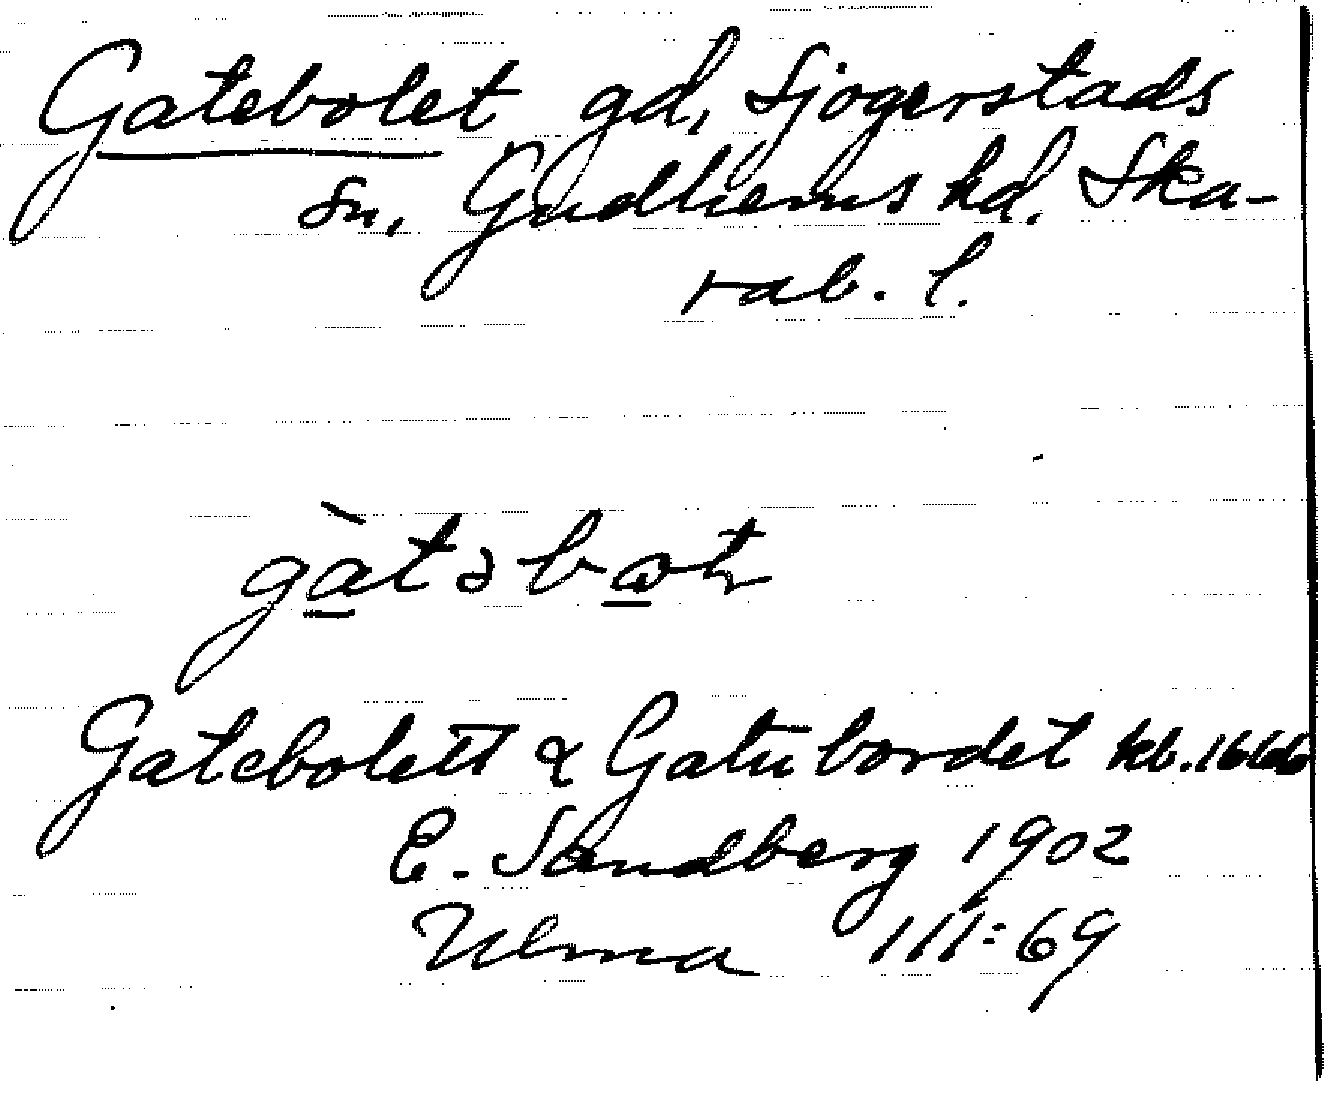 Gatebolet gd, Sjogerstads
sn, Gudhems hd. Ska-
rab. l.
gàtəbωt
Gatebolett & Gatubordet kb. 1666
E. Sandberg 1902
Ulma 111:69